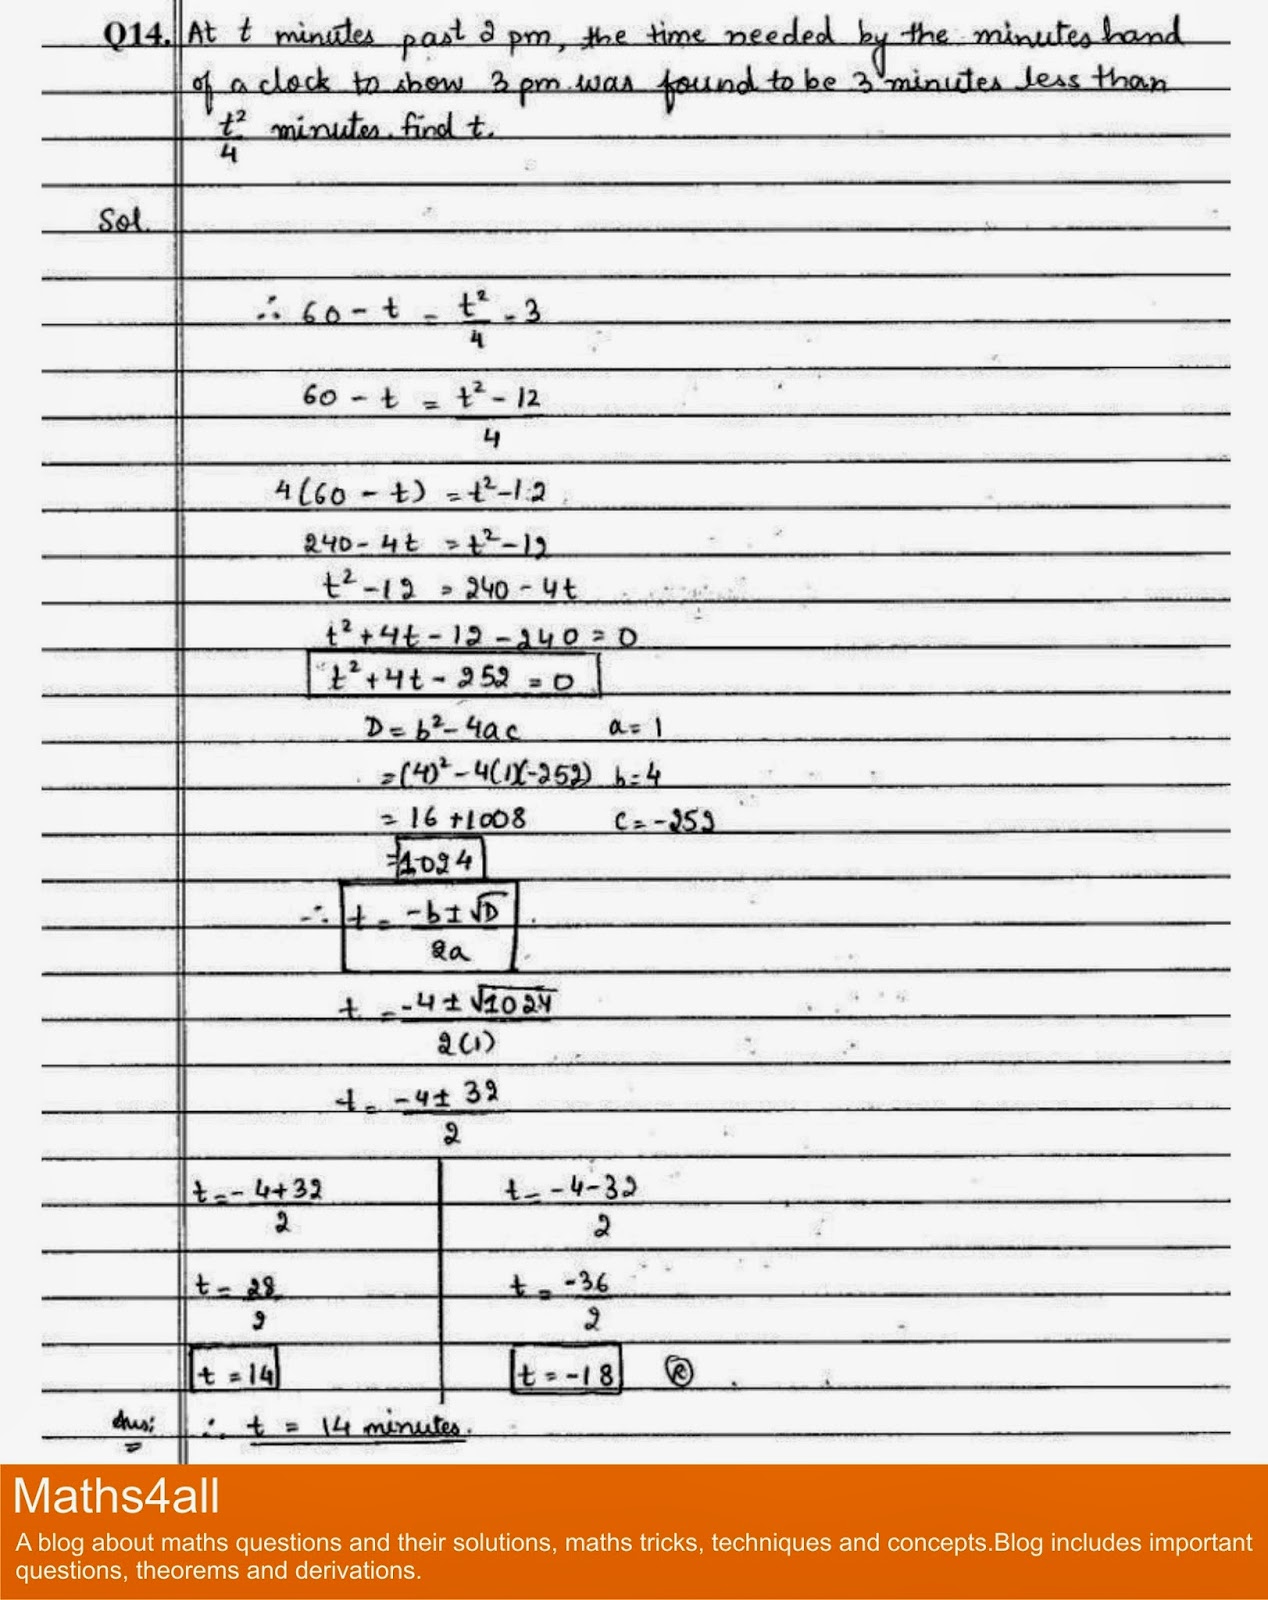 Q14. At t minutes past 2 pm, the time needed by the minutes hand
of a clock to show 3 pm was found to be 3 minutes less than
t²/4 minutes. find t.
Sol.
∴ 60 - t = t²/4 - 3
60 - t = (t² - 12)/4
4(60 - t) = t² - 12
240 - 4t = t² - 12
t² - 12 = 240 - 4t
t² + 4t - 12 - 240 = 0
t² + 4t - 252 = 0
D = b² - 4ac a = 1
= (4)² - 4(1)(-252) b = 4
= 16 + 1008 c = -252
= 1024
∴ t = (-b ± √D)/2a
t = (-4 ± √1024)/2(1)
t = (-4 ± 32)/2
t = (-4 + 32)/2 t = (-4 - 32)/2
t = 28/2 t = -36/2
t = 14 t = -18 Ⓡ
Ans: ∴ t = 14 minutes.
Maths4all
A blog about maths questions and their solutions, maths tricks, techniques and concepts.Blog includes important
questions, theorems and derivations.